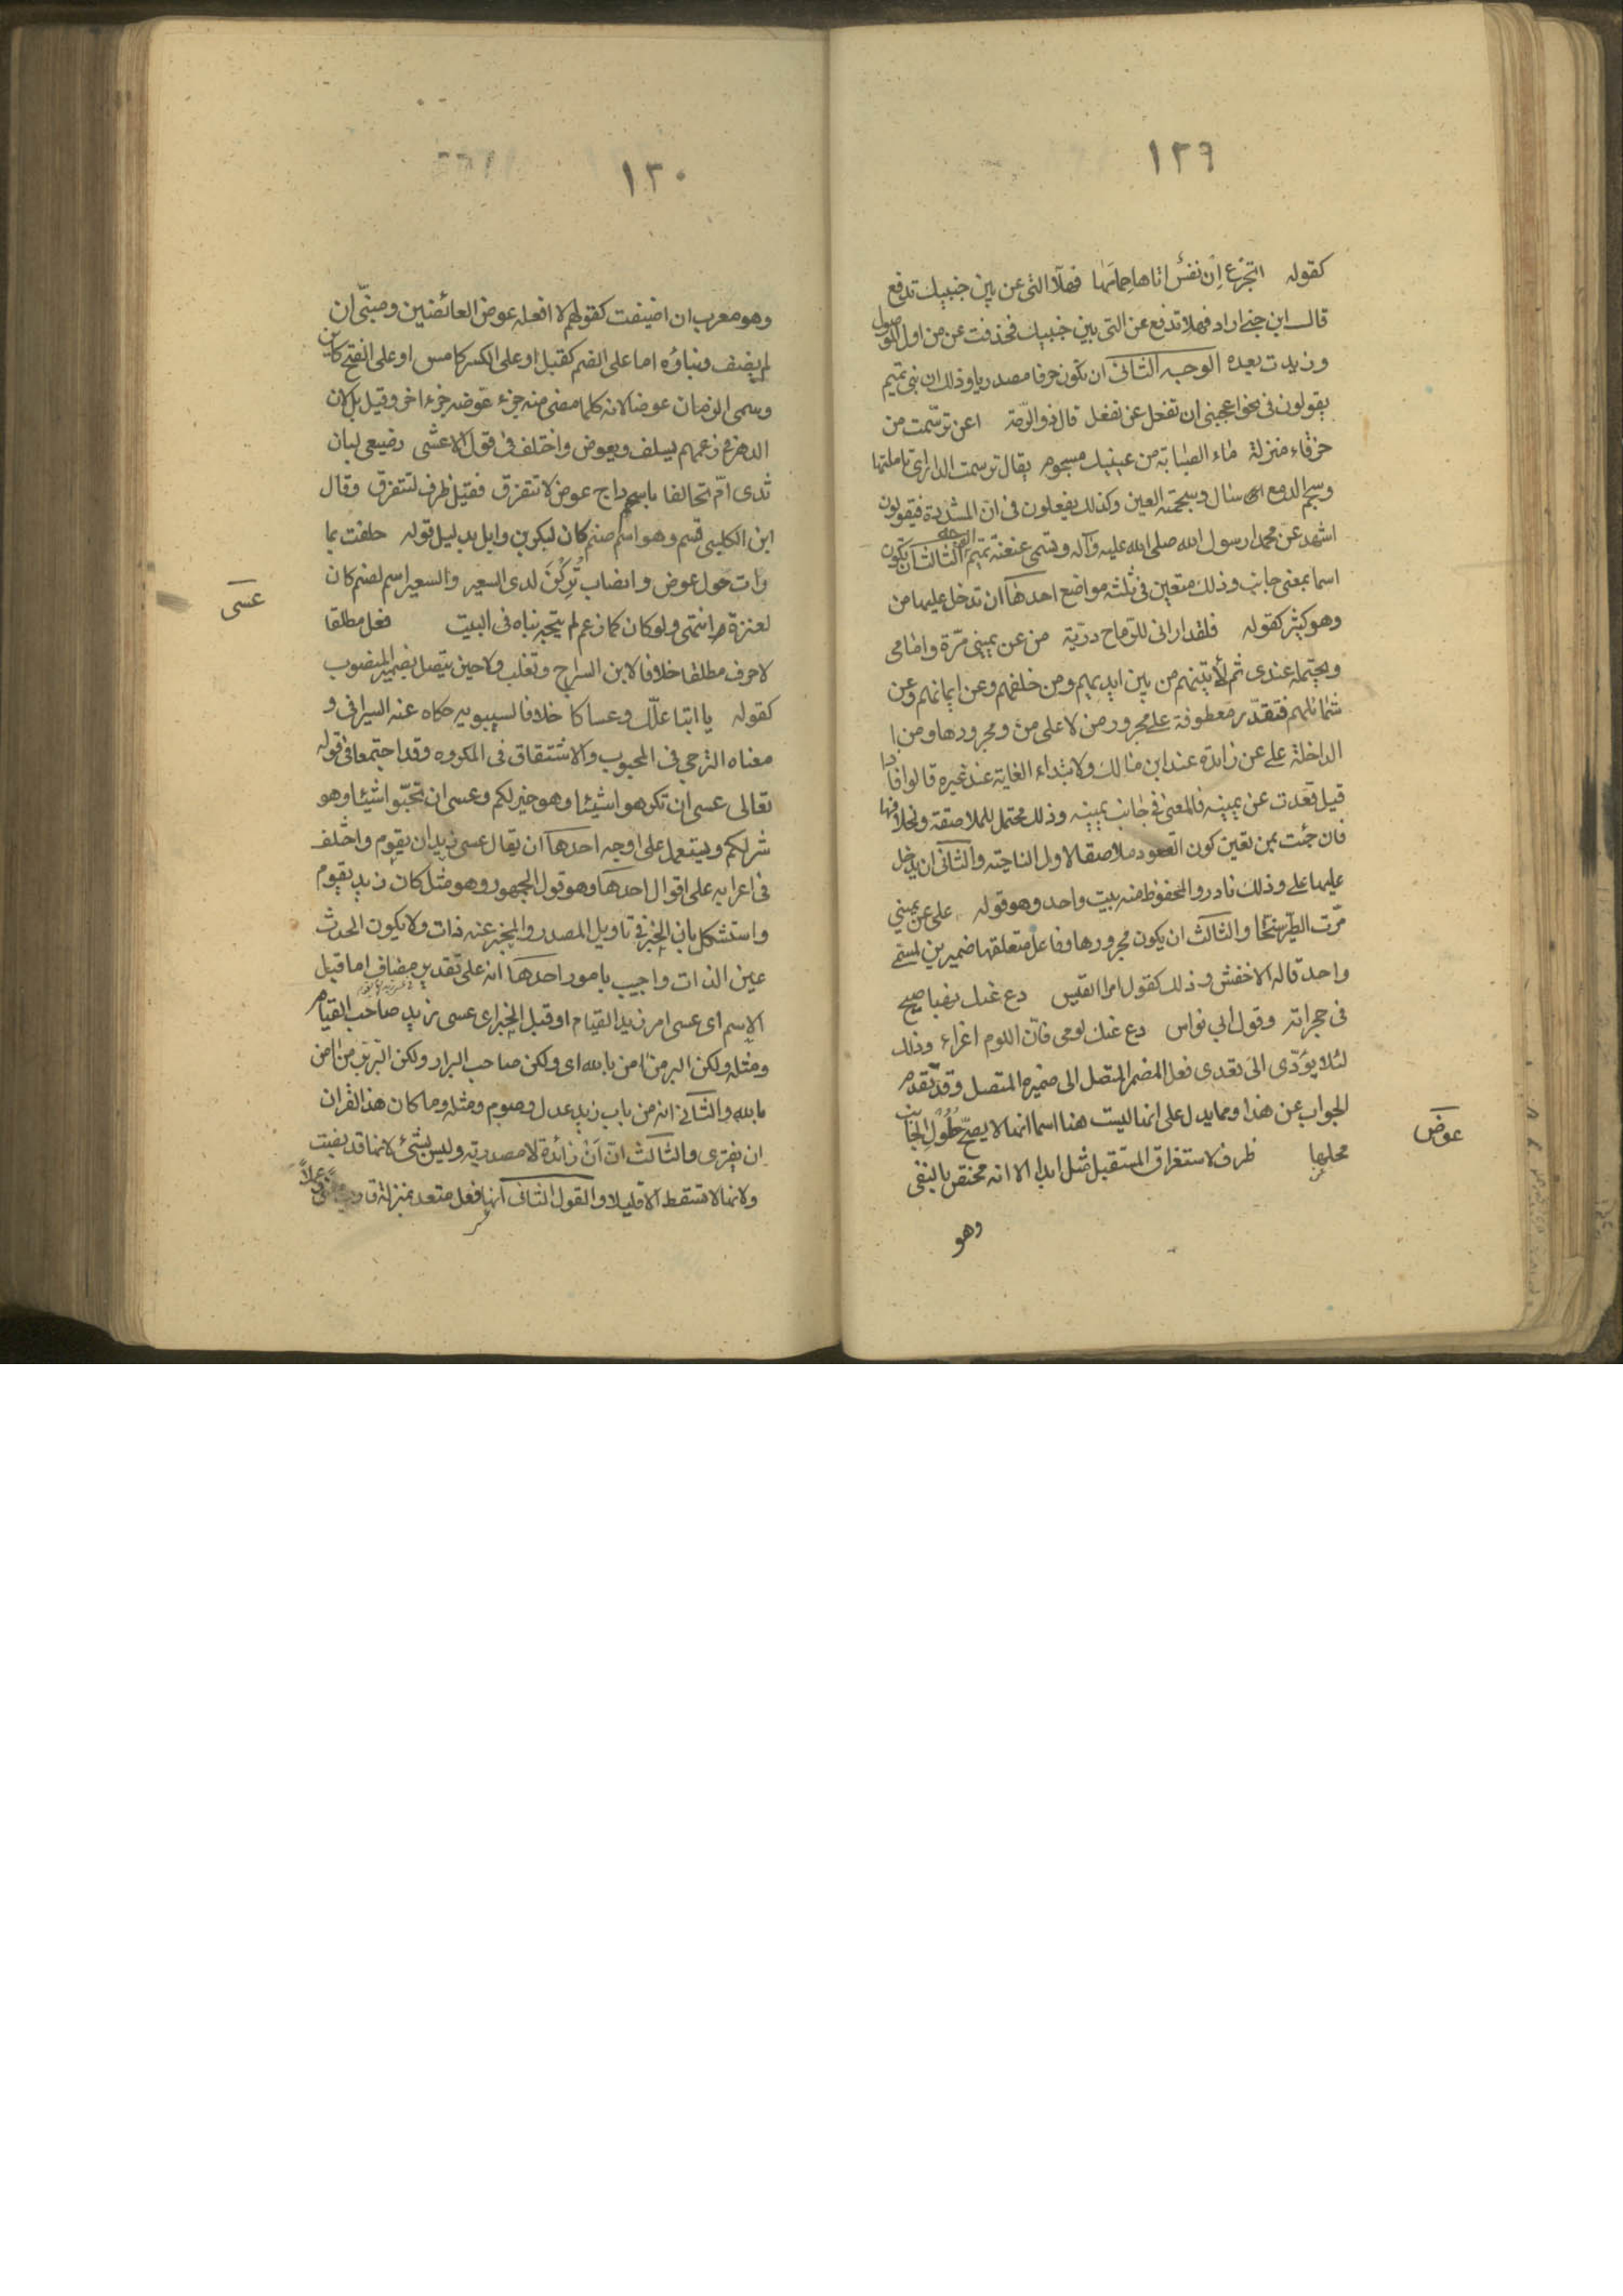 ١٢٩
كقوله اتجزع ان نفس اتاها حمامها فهلا التى عن بين جنبيك تدفع
قال ابن جنى اراد فهلا تدفع عن التى بين جنبيك فحذفت عن من اول الموصول
وزيدت بعده الوجه الثانى ان تكون حرفا مصدريا وذلك ان بنى تميم
يقولون فى نحو اعجبنى ان تفعل عن تفعل قال ذو الرمة اعن ترسمت من
خرقاء منزلة ماء الصبابة من عينيك مسجوم يقال ترسمت الدار اى تاملتها
وسجم الدمع اى سال وسجمته العين وكذلك يفعلون فى ان المشددة فيقولون
اشهد عن محمدا رسول الله صلى الله عليه وآله وتسمى عنعنة تميم الوجه الثالث ان تكون
اسما بمعنى جانب وذلك متعين فى ثلثة مواضع احدها ان تدخل عليها من
وهو كثير كقوله فلقد ارانى للرماح دريّة من عن يمينى مرّة وامامى
ويحتمله عندى ثم لأتينهم من بين ايديهم ومن خلفهم وعن ايمانهم وعن
شمائلهم فتقدّر معطوفة على مجرور من لا على من ومجرورها ومن
الداخلة على عن زائدة عند ابن مالك ولابتداء الغاية عند غيره قالوا فاذا
قيل قعدت عن يمينه فالمعنى فى جانب يمينه وذلك محتمل للملاصقة ولخلافها
فان جئت بمن تعين كون القعود ملاصقا لاول الناحية والثانى ان يدخل
عليها على وذلك نادر والمحفوظ منه بيت واحد وهو قوله على عن يمينى
مرّت الطير سنّحا والثالث ان يكون مجرورها وفاعل متعلقها ضميرين لمسمى
واحد قاله الاخفش وذلك كقول امرا القيس دع عنك نهبا صيح
فى حجراته وقول ابى نواس دع عنك لومى فان اللوم اغراء وذلك
لئلا يؤدّى الى تعدى فعل المضمر المتصل الى ضميره المتصل وقد تقدم
الجواب عن هذا ومما يدل على انها ليست هنا اسما انها لا يصحّ حلول الجانب
محلها ظرف لاستغراق المستقبل مثل ابدا الا انه مختص بالنفى
عوض
وهو
١٣٠
وهو معرب ان اضيفت كقولهم لا افعله عوض العائضين ومبنىّ ان
لم يضف وبناؤه اما على الضم كقبل او على الكسر كامس او على الفتح كاين
وسمى الزمان عوضا لانه كلما مضى منه جزء عوضه جزء اخر وقيل بل لان
الدهر فى زعمهم يسلف ويعوض واختلف فى قول الاعشى رضيعى لبان
ثدى امّ تحالفا باسحم داج عوض لا نتفرق فقيل ظرف لنتفرق وقال
ابن الكلبى قسم وهو اسم صنم كان لبكر بن وايل بدليل قوله حلفت بما
رات حول عوض وانصاب تُرِكْنَ لدى السعير والسعير اسم لصنم كان
لعنزة انتهى ولو كان كما زعم لم يتجه بناه فى البيت فعل مطلقا
عسى
لا حرف مطلقا خلافا لابن السراج وثعلب ولا حين يتصل بضمير المنصوب
كقوله يا ابتا علّك وعساكا خلافا لسيبويه حكاه عنه السيرافى و
معناه الترجى فى المحبوب والاشفاق فى المكروه وقد اجتمعا فى قوله
تعالى عسى ان تكرهوا شيئا وهو خير لكم وعسى ان تحبّوا شيئا وهو
شر لكم ويستعمل على اوجه احدها ان يقال عسى زيد ان يقوم واختلف
فى اعرابه على اقوال احدها وهو قول الجمهور وهو مثل كان زيد يقوم
واستشكل بان الخبر فى تاويل المصدر والمخبر عنه ذات ولا يكون الحدث
عين الذات واجيب بامور احدها انه على تقدير مضاف اما قبل
الاسم اى عسى امر زيد القيام او قبل الخبر اى عسى زيد صاحب القيام
ومثله ولكن البر من امن بالله اى ولكن صاحب البر او ولكن البر بر من امن
بالله والثانى انه من باب زيد عدل وصوم ومثله وما كان هذا القران
ان يفترى والثالث ان اَنْ زائدة لا مصدرية وليس بشئ لانها قد نصبت
ولانها لا تسقط الا قليلا والقول الثانى انها فعل متعد بمنزلة قارب